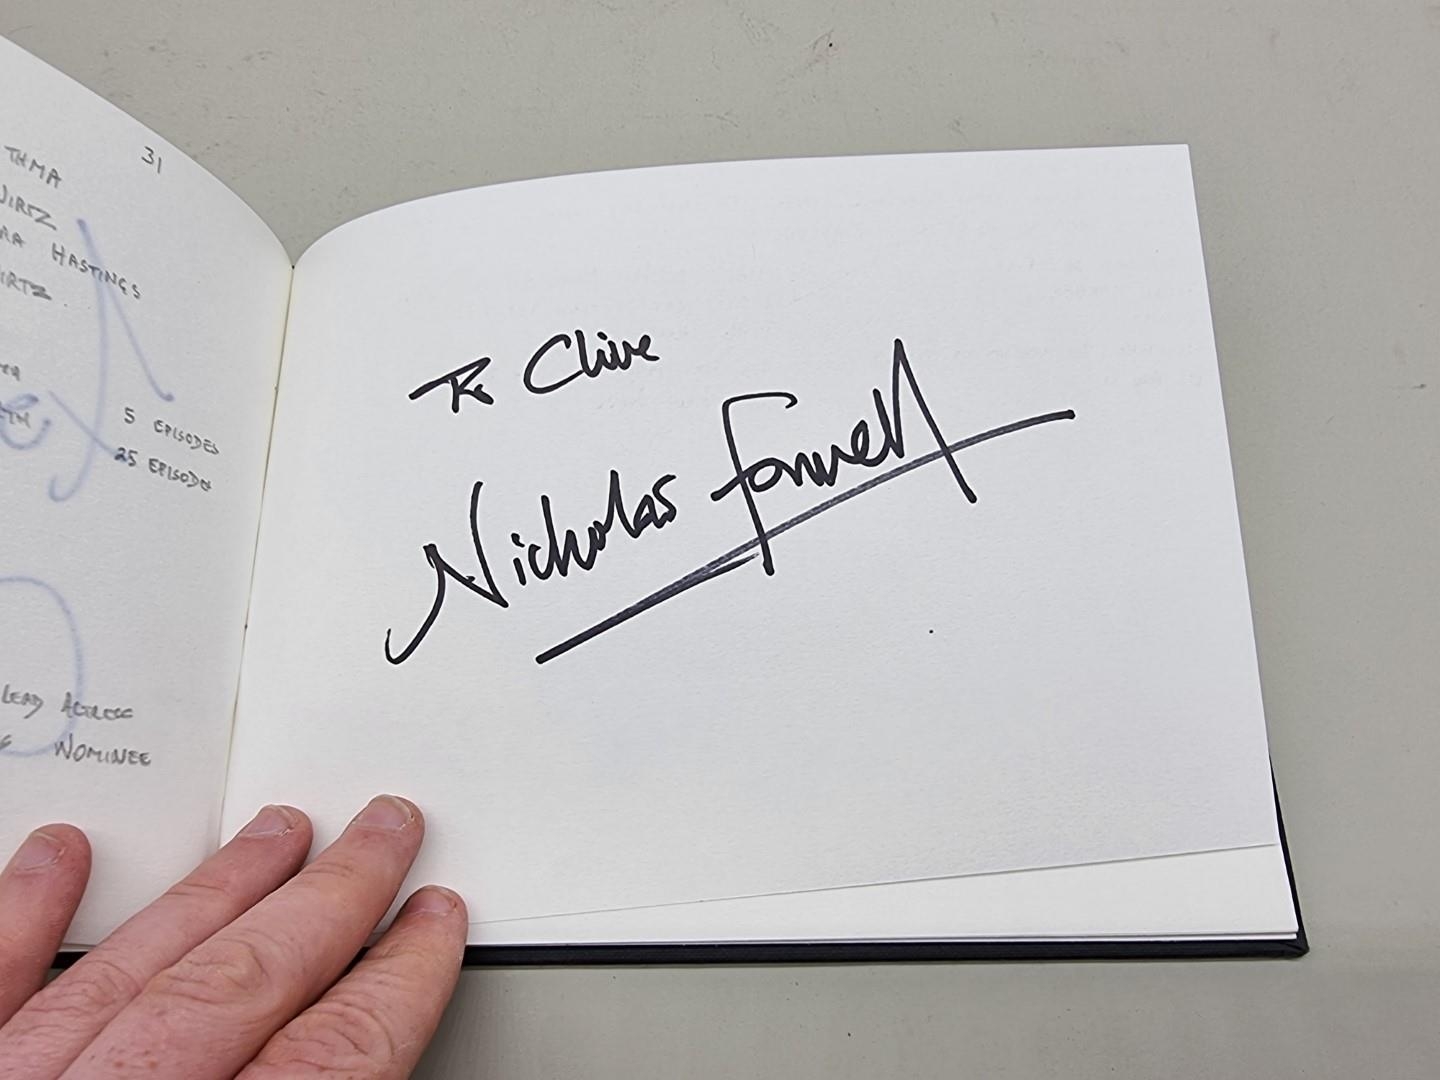 31
THMA
HASTINGS
5 EPISODES
25 EPISODES
LEAD ACTRESS
NOMINEE
To Clive
Nicholas Farrell